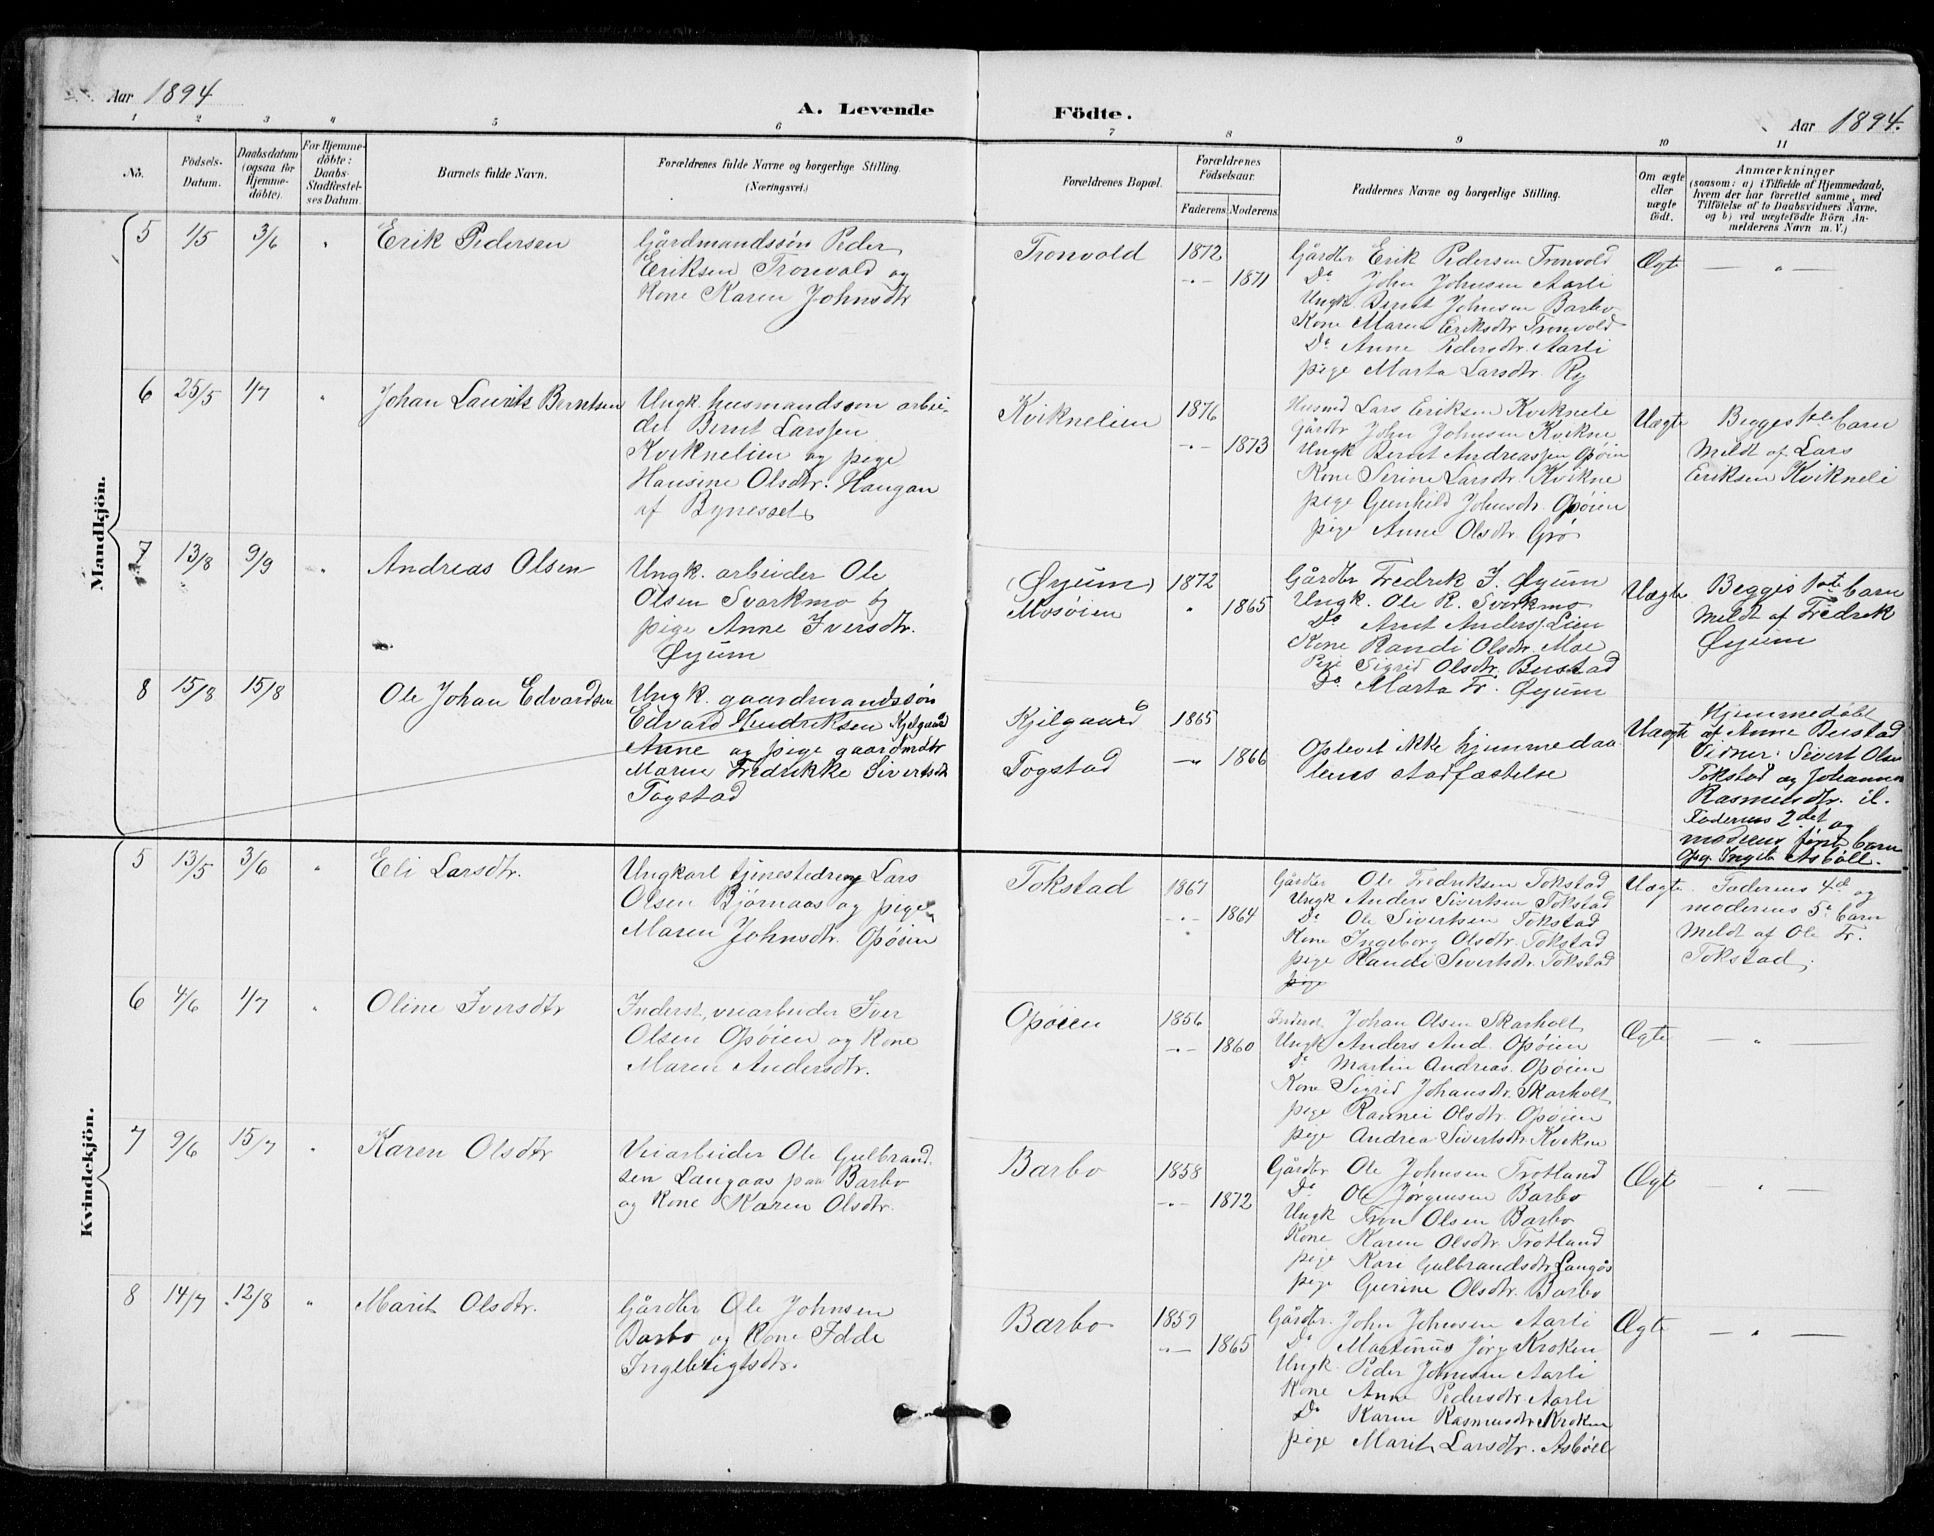 Aar 1894
A. Levende
Födte.
Aar 1894.
1 2 3 4 5 6 7 8 9 10 11
No.
Födsels-
Datum.
Daabsdatum
(ogsaa for
Hjemme-
döbte).
For Hjemme-
döbte:
Daabs-
Stadfæstel-
ses Datum.
Barnets fulde Navn.
Forældrenes fulde Navne og borgerlige Stilling.
(Næringsvei.)
Forældrenes Bopæl.
Forældrenes
Födselsaar.
Faderens. Moderens.
Faddernes Navne og borgerlige Stilling.
Om ægte
eller
uægte
födt.
Anmærkninger
(saasom: a) i Tilfælde af Hjemmedaab,
hvem der har forrettet samme, med
Tilföielse af to Daabsvidners Navne,
og b) ved uægtefödte Börn An-
melderens Navn m. V.)
Mandkjön.
5 1/5 3/6 " Erik Pedersen
Gårdmandssön Peder
Eriksen Tronvold og
Kone Karen Johnsdtr
Tronvold 1872
-"- 1871
Gårdbr Erik Pedersen Tronvold
Do John Johnsen Aarli
Ungk. Bernt Johnsen Barbo
Kone Maren Eriksdtr Tronvold
Do Anne Pedersdtr. Aarli
pige Marta Larsdtr. Ry
Ægte — " —
6 25/5 1/7 " Johan Lauritz Berntsen
Ungk. husmandssøn arbei-
der Bernt Larssen
Kviknelien og pige
Hansine Olsdtr. Haugan
af Bynesset
Kviknelien 1876
-"- 1873
Husmd Lars Eriksen Kvikneli
Gårdbr John Johnsen Kvikne
Ungk Bernt Andreassen Opöien
Kone Serine Larsdtr. Kvikne
pige Gunhild Johnsdtr. Opöien
pige Anne Olsdtr. Grö
Uægte
Begges 1ste barn
Meldt af Lars
Eriksen Kvikneli
7 13/8 9/9 " Andreas Olsen
Ungk. arbeider Ole
Olsen Svarkmo og
pige Anne Iversdtr.
Øyum
(Øyum)
Mosöien
1872
" 1865
Gårdbr Fredrik J. Øyum
Ungk. Ole R. Svirkmo
Do Arnt Anders. Lien
Kone Randi Olsdtr. Moe
Pige Sigrid Olsdtr. Bustad
Do Marta Fr. Øyum
Uægte
Begges 1ste barn
Meldt af Fredrik
Øyum
8 15/8 15/8 Ole Johan Edvardsen
Ungk. gaardmandssön
Edvard Hendriksen Kjelgaard
Anne og pige gaardmdtr
Maren Fredrikke Sivertsdtr
Togstad
Kjelgaard 1865
Togstad -"- 1866
Oplevet ikke hjemmedaa
bens stadfæstelse
Uægte
Hjemmedöbt
af Anne Bustad
Vidner: Sivert Olsen
Tokstad og Johanna
Rasmusdtr. il.
Faderens 2det og
moderens förste barn
Opg. Ingeb. Asböll.
Kvindekjön.
5 13/5 3/6 " Eli Larsdtr.
Ungkarl tjenestedreng Lars
Olsen Bjørnaas og pige
Maren Johnsdtr. Opöien
Tokstad 1867
-"- 1864
Gårdbr Ole Fredriksen Tokstad
Ungk Anders Sivertsen Tokstad
Do Ole Sivertsen Tokstad
Kone Ingeborg Olsdtr. Tokstad
pige Randi Sivertsdtr. Tokstad
pige
Uægte
Faderens 4de og
moderens 5te barn
Meldt af Ole Fr.
Tokstad.
6 4/6 1/7 " Oline Iversdtr
Inderst, veiarbeider Iver
Olsen Opöien og Kone
Maren Andersdtr.
Opöien 1856
-"- 1860
Inderst Johan Olsen Skarholt
Ungk Anders And. Opöien
Do Martin Andreas. Opöien
Kone Sigrid Johansdtr. Skarholt
pige Rannei Olsdtr. Opöien
pige Andrea Sivertsdtr. Kvikne
Ægte — " —
7 9/6 15/7 " Karen Olsdtr
Veiarbeider Ole Gulbrand-
sen Langaas paa Barbo
og Kone Karen Olsdtr.
Barbo 1858
-"- 1872
Gårdbr Ole Johnsen Trotland
Do Ole Jørgensen Barbo
Ungk Tron Olsen Barbo
Kone Karen Olsdtr. Trotland
pige Kari Gulbrandsdtr. Langås
pige Gurine Olsdtr. Barbo
Ægte — " —
8 14/7 12/8 " Marit Olsdtr.
Gårdbr Ole Johnsen
Barbo og Kone Idde
Ingebrigtsdtr.
Barbo 1859
-"- 1865
Gårdbr. John Johnsen Aarli
Do Martinus Jörg. Kroken
Ungk. Peder Johnsen Aarli
Kone Anne Pedersdtr. Aarli
Do Karen Rasmusdtr. Kroken
pige Marit Larsdtr. Asböll
Ægte — " —